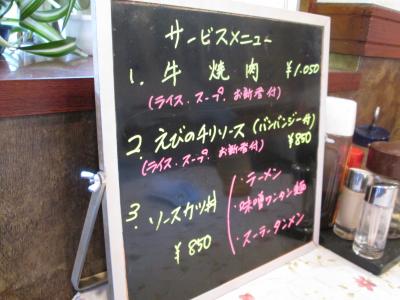 サービスメニュー
1. 牛焼肉 ¥1.050
(ライス、スープ、お新香付)
2. えびのチリソース(バンバンジー付)
¥850
(ライス、スープ、お新香付)
3. ソースカツ丼
¥850
・ラーメン
・味噌ワンタン麺
・スーラータンメン